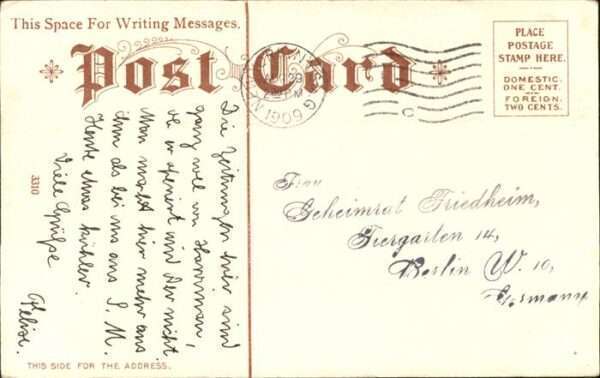 This Space For Writing Messages.
Post Card
PLACE
POSTAGE
STAMP HERE.
DOMESTIC.
ONE CENT.
FOREIGN.
TWO CENTS.
1909
C
Die Zeitungen hier sind
ganz voll von Harriman,
ob er operiert wird oder nicht
Man macht hier mehr aus
ihm als bei uns aus S. M.
Heute etwas kühler.
Viele Grüße
Felise.
3310
Frau
Geheimrat Friedheim,
Tiergarten 14,
Berlin W. 10,
Germany
THIS SIDE FOR THE ADDRESS.